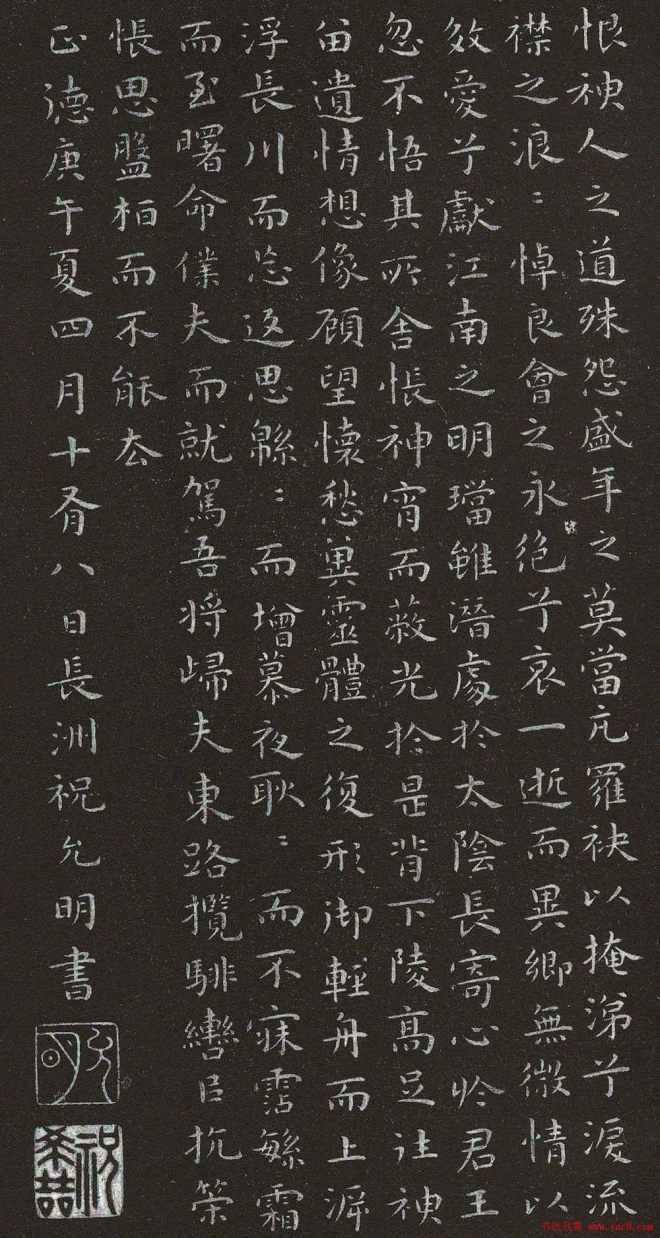 恨神人之道殊怨盛年之莫當亢羅袂以掩涕兮淚流
襟之浪〻悼良會之永絕兮哀一逝而異鄉無微情以
效愛兮獻江南之明璫雖潛處於太陰長寄心於君王
忽不悟其所舍悵神宵而蔽光於是背下陵高足往神
留遺情想像顧望懷愁冀靈體之復形御輕舟而上泝
浮長川而忘返思緜〻而增慕夜耿〻而不寐霑繁霜
而至曙命僕夫而就駕吾將歸夫東路攬騑轡以抗策
悵思盤桓而不能去
正德庚午夏四月十有八日長洲祝允明書
允明
祝希哲
书法欣赏 www.yac8.com